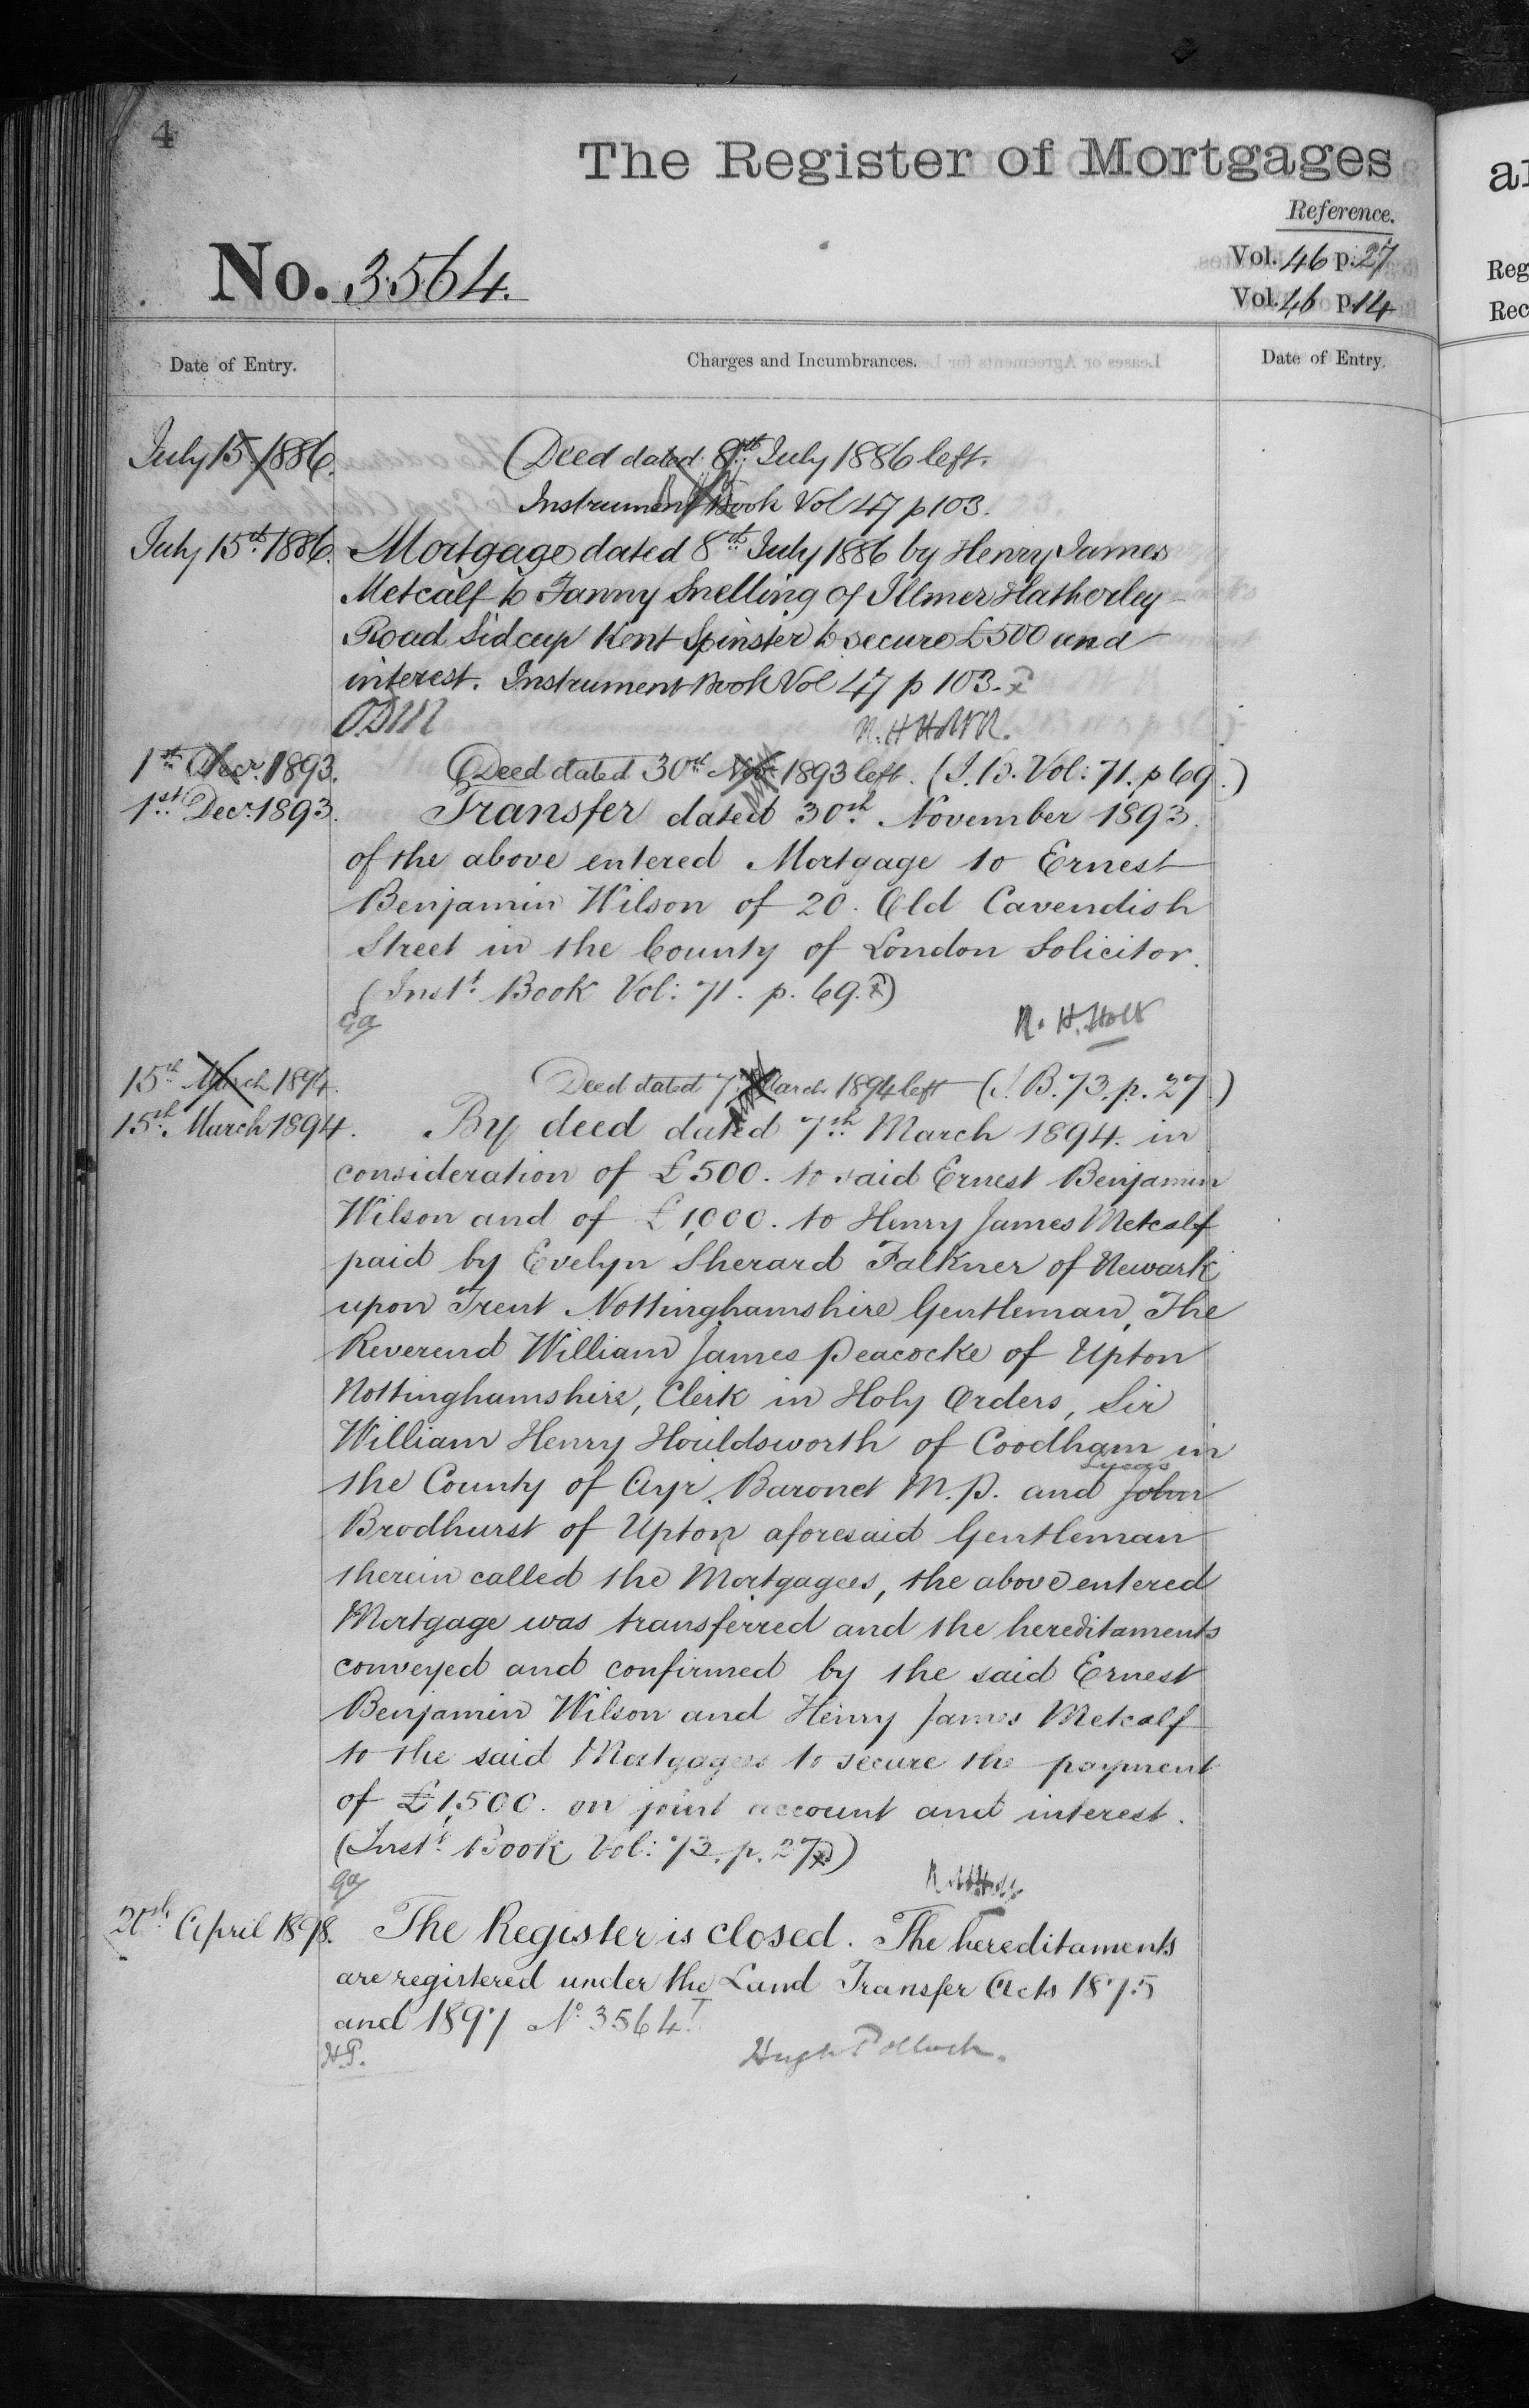 4
The Register of Mortgages
Reference.
No. 3564.
Vol. 46 p. 27
Vol. 46 p. 14
Date of Entry.
Charges and Incumbrances.
Date of Entry.
July 15. 1886.
Deed dated 8th July 1886 left.
Instrument Book Vol 47 p 103.
July 15th 1886.
Mortgage dated 8th July 1886 by Henry James
Metcalf to Fanny Snelling of Illmer Hatherley
Road Sidcup Kent Spinster to secure £500 and
interest. Instrument Book Vol 47 p 103.
1st Decr. 1893.
Deed dated 30th Nov 1893 left. (I.B. Vol: 71. p 69.)
1st Decr. 1893.
Transfer dated 30th November 1893.
of the above entered Mortgage to Ernest
Benjamin Wilson of 20. Old Cavendish
Street in the County of London Solicitor.
(Inst. Book Vol: 71. p. 69.)
R. H. Holt
15th March 1894.
Deed dated 7th March 1894 left (I.B. 73. p. 27.)
15th March 1894.
By deed dated 7th March 1894. in
consideration of £500. to said Ernest Benjamin
Wilson and of £1,000. to Henry James Metcalf
paid by Evelyn Sherard Falkner of Newark
upon Trent Nottinghamshire Gentleman, The
Reverend William James Peacocke of Upton
Nottinghamshire, Clerk in Holy Orders, Sir
William Henry Houldsworth of Coodham in
the County of Ayr. Baronet M.P. and John
Brodhurst of Upton aforesaid Gentleman
therein called the Mortgagees, the above entered
Mortgage was transferred and the hereditaments
conveyed and confirmed by the said Ernest
Benjamin Wilson and Henry James Metcalf
to the said Mortgagees to secure the payment
of £1,500. on joint account and interest.
(Inst. Book Vol: 73. p. 27)
April 1898.
The Register is closed. The hereditaments
are registered under the Land Transfer Acts 1875
and 1897 No. 3564
H.P.
Hugh Pollock.
al
Reg
Rec